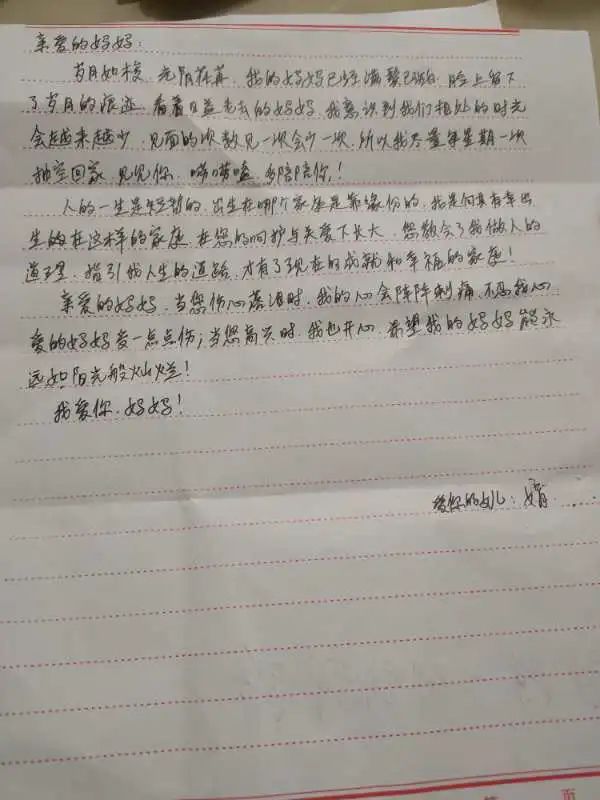 亲爱的妈妈：
岁月如梭，光阴荏苒，我的妈妈已经满鬓已斑白，脸上留下
了岁月的痕迹，看着日益老去的妈妈，我意识到我们相处的时光
会越来越少，见面的次数见一次会少一次，所以我尽量每星期一次
抽空回家，见见你，唠唠嗑，多陪陪你！
人的一生是短暂的，出生在哪个家庭是靠缘份的，我是何其有幸出
生的在这样的家庭，在您的呵护与关爱下长大，您教会了我做人的
道理，指引我人生的道路，才有了现在的成就和幸福的家庭！
亲爱的妈妈，当您伤心落泪时，我的心会阵阵刺痛，不忍我心
爱的妈妈受一点点伤；当您高兴时，我也开心，希望我的妈妈能永
远如阳光般灿烂！
我爱你，妈妈！
爱你的女儿：婧
页